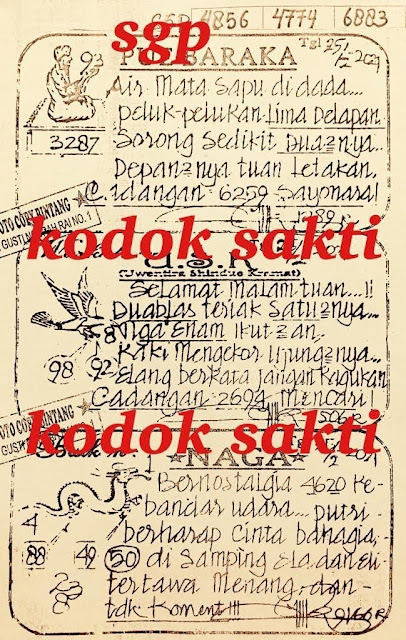 SGP 4856 4774 6883
sgp
Tgl 25/
BARAKA
93
Air Mata Sapu di dada....
peluk-pelukan Lima Delapan
3287
Sorong Sedikit Dua2nya...
Depan2nya tuan Letakan,
Cadangan - 6259 Sayonara!
FOTO COPY BINTANG
GUSTI RAI NO.1
kodok sakti
(Uwentira Shinduo Kramat)
Selamat Malam tuan...!!
Duablas teriak Satu2nya...
8
Tiga Enam Ikut2an,
Kaki Mengekor Ujungnya...
98 92
Elang berkata jangan Ragukan
Cadangan - 2694 Mencari!
FOTO COPY BINTANG
GUSTI
kodok sakti
NAGA
Bernostalgia 4620 Ke-
bandar udara.... putri-
4
berharap Cinta bahagia,
88 49 50 di Samping Ela dan Eli
tertawa Menang, dan-
tak Koment !!!